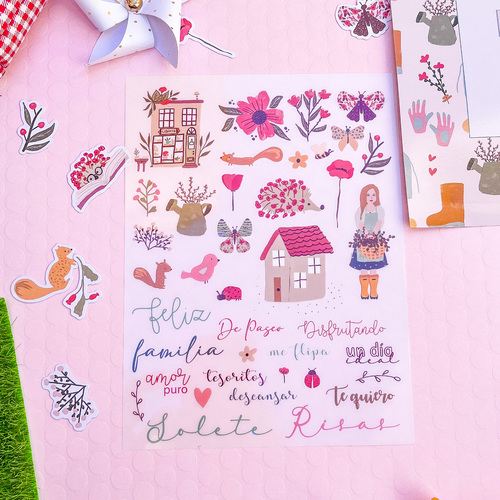 feliz
De Paseo Disfrutando
familia me flipa un día ideal
amor puro tesoritos
descansar te quiero
Solete Risas